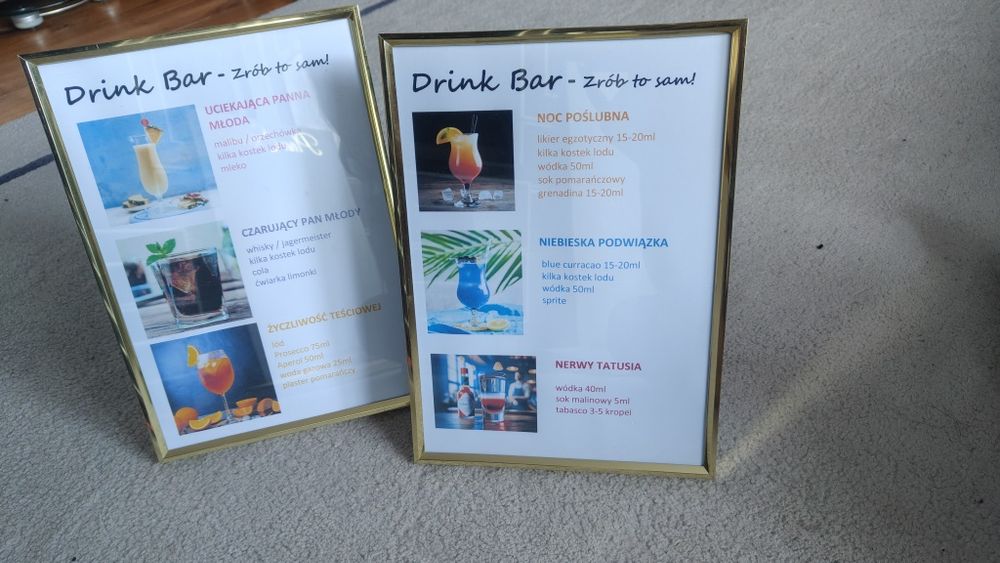 Drink Bar - Zrób to sam!
UCIEKAJĄCA PANNA
MŁODA
malibu / orzechówka
kilka kostek lodu
mleko
CZARUJĄCY PAN MŁODY
whisky / jagermeister
kilka kostek lodu
cola
ćwiarka limonki
ŻYCZLIWOŚĆ TEŚCIOWEJ
lód
Prosecco 75ml
Aperol 50ml
woda gazowa 25ml
plaster pomarańczy
Drink Bar - Zrób to sam!
NOC POŚLUBNA
likier egzotyczny 15-20ml
kilka kostek lodu
wódka 50ml
sok pomarańczowy
grenadina 15-20ml
NIEBIESKA PODWIĄZKA
blue curracao 15-20ml
kilka kostek lodu
wódka 50ml
sprite
NERWY TATUSIA
wódka 40ml
sok malinowy 5ml
tabasco 3-5 kropel